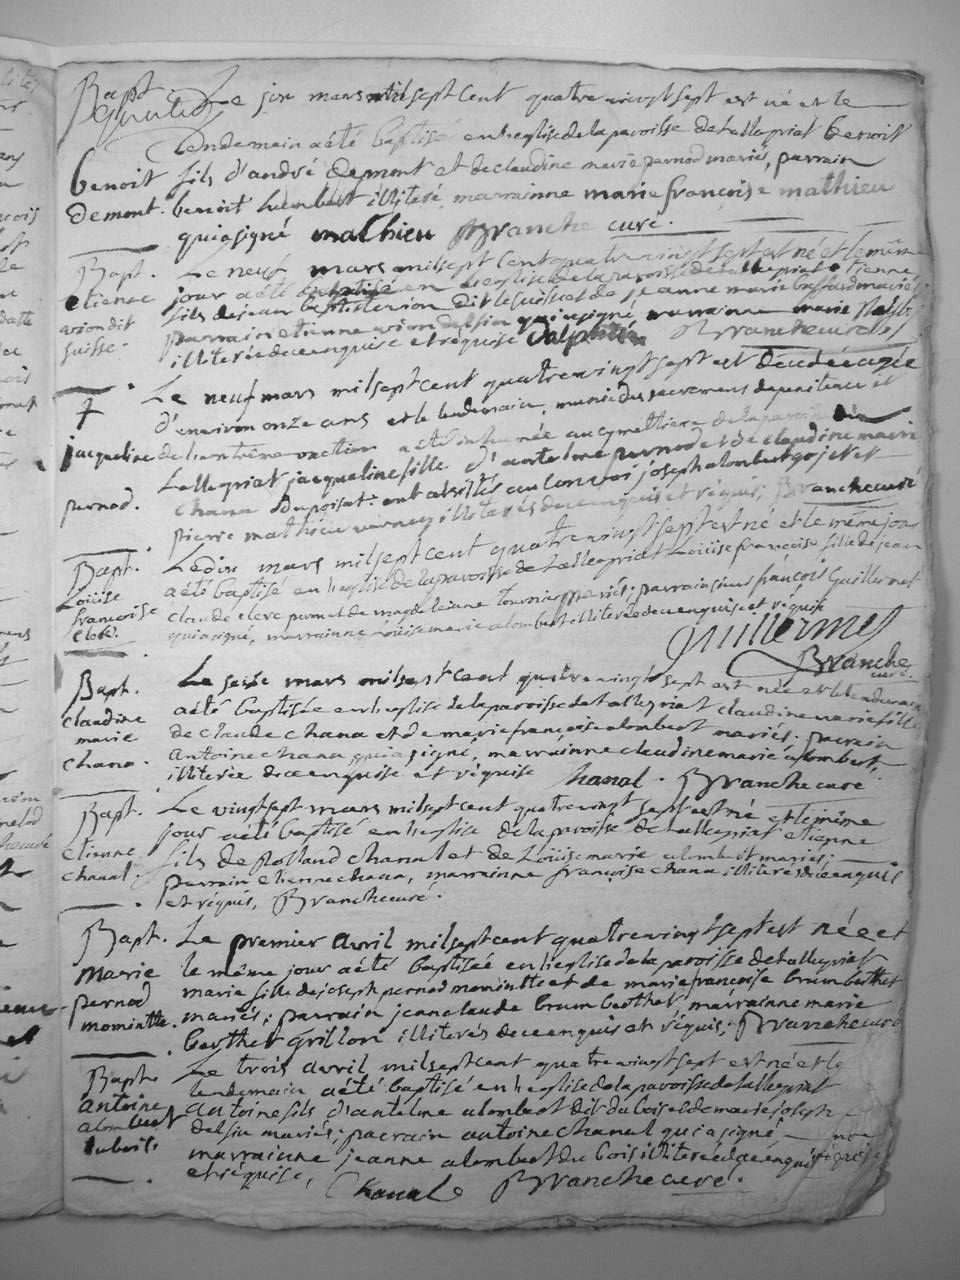 Bapt. Le six mars mil sept cent quatre vingt sept est né et le
lendemain a été baptisé en l'eglise de la paroisse de talleyriat benoit
benoit fils d'andré demont et de claudine marie pernod mariés, parrain
demont. benoit humbert illiteré marrainne marie françoise mathieu
qui a signé mathieu Branche curé.
Bapt. Le neuf mars mil sept cent quatre vingt sept est né et le même
etienne jour a été baptisé en l'eglise de la paroisse de talleyriat etienne
arion dit fils de jean baptiste arion dit le suisse et de jeanne marie mariés
suisse. parrain etienne arion delphin qui a signé marrainne marie
illiterée de ce enquise et requise Dalphin Branche curé
Le neuf mars mil sept cent quatre vingt sept est décédée agée
d'environ onze ans et le lendemain, munie des sacremens de penitence et
jacqueline de l'extrême onction a été inhumée au cymettiere de la paroisse de
talleyriat jacqueline fille d'antelme pernod et de claudine marie
pernod. chana Dupoisat. ont assistés au convoi joseph alombert gojet et
pierre mathieu varney illiterés de ce enquis et requis, Branche curé
Bapt. Le dix mars mil sept cent quatre vingt sept est né et le même jour
Loüise a été baptisé en l'eglise de la paroisse de talleyriat Loüise françoise fille de jean
françoise claude clerc et de magdeleine tournier mariés; parrain sieur françois Guillermet
clerc. qui a signé, marrainne Loüise marie alombert illiterée de ce enquise et requise
Guillermet
Branche
curé.
Bapt. Le seize mars mil sept cent quatre vingt sept est née et le lendemain
claudine a été baptisée en l'eglise de la paroisse de talleyriat claudine marie fille
marie de claude chana et de marie françoise alombert mariés; parrain
chana. antoine chana qui a signé, marrainne claudine marie alombert,
illiterée de ce enquise et requise chanal. Branche curé
Bapt. Le vingt sept mars mil sept cent quatre vingt sept est né et le même
jour a été baptisé en l'eglise de la paroisse de talleyriat etienne
etienne fils de Rolland chanal et de Loüise marie alombert mariés;
chanal. parrain etienne chana, marrainne françoise chana illiterés de ce enquis
et requis, Branche curé.
Bapt. Le premier avril mil sept cent quatre vingt sept est née et
marie le même jour a été baptisée en l'eglise de la paroisse de talleyriat
pernod marie fille de joseph pernod mominette et de marie françoise brum berthet
mominette. mariés; parrain jean claude brum berthet marrainne marie
berthet grillon illiterés de ce enquis et requis; Branche curé
Bapt. Le trois avril mil sept cent quatre vingt sept est né et le
lendemain a été baptisé en l'eglise de la paroisse de talleyriat
antoine antoine fils d'antelme alombert dit du bois et de marie joseph
alombert delphin mariés; parrain antoine chanal qui a signé
dubois. marrainne jeanne alombert du bois illiterée de ce enquise
et requise, Chanal Branche curé.